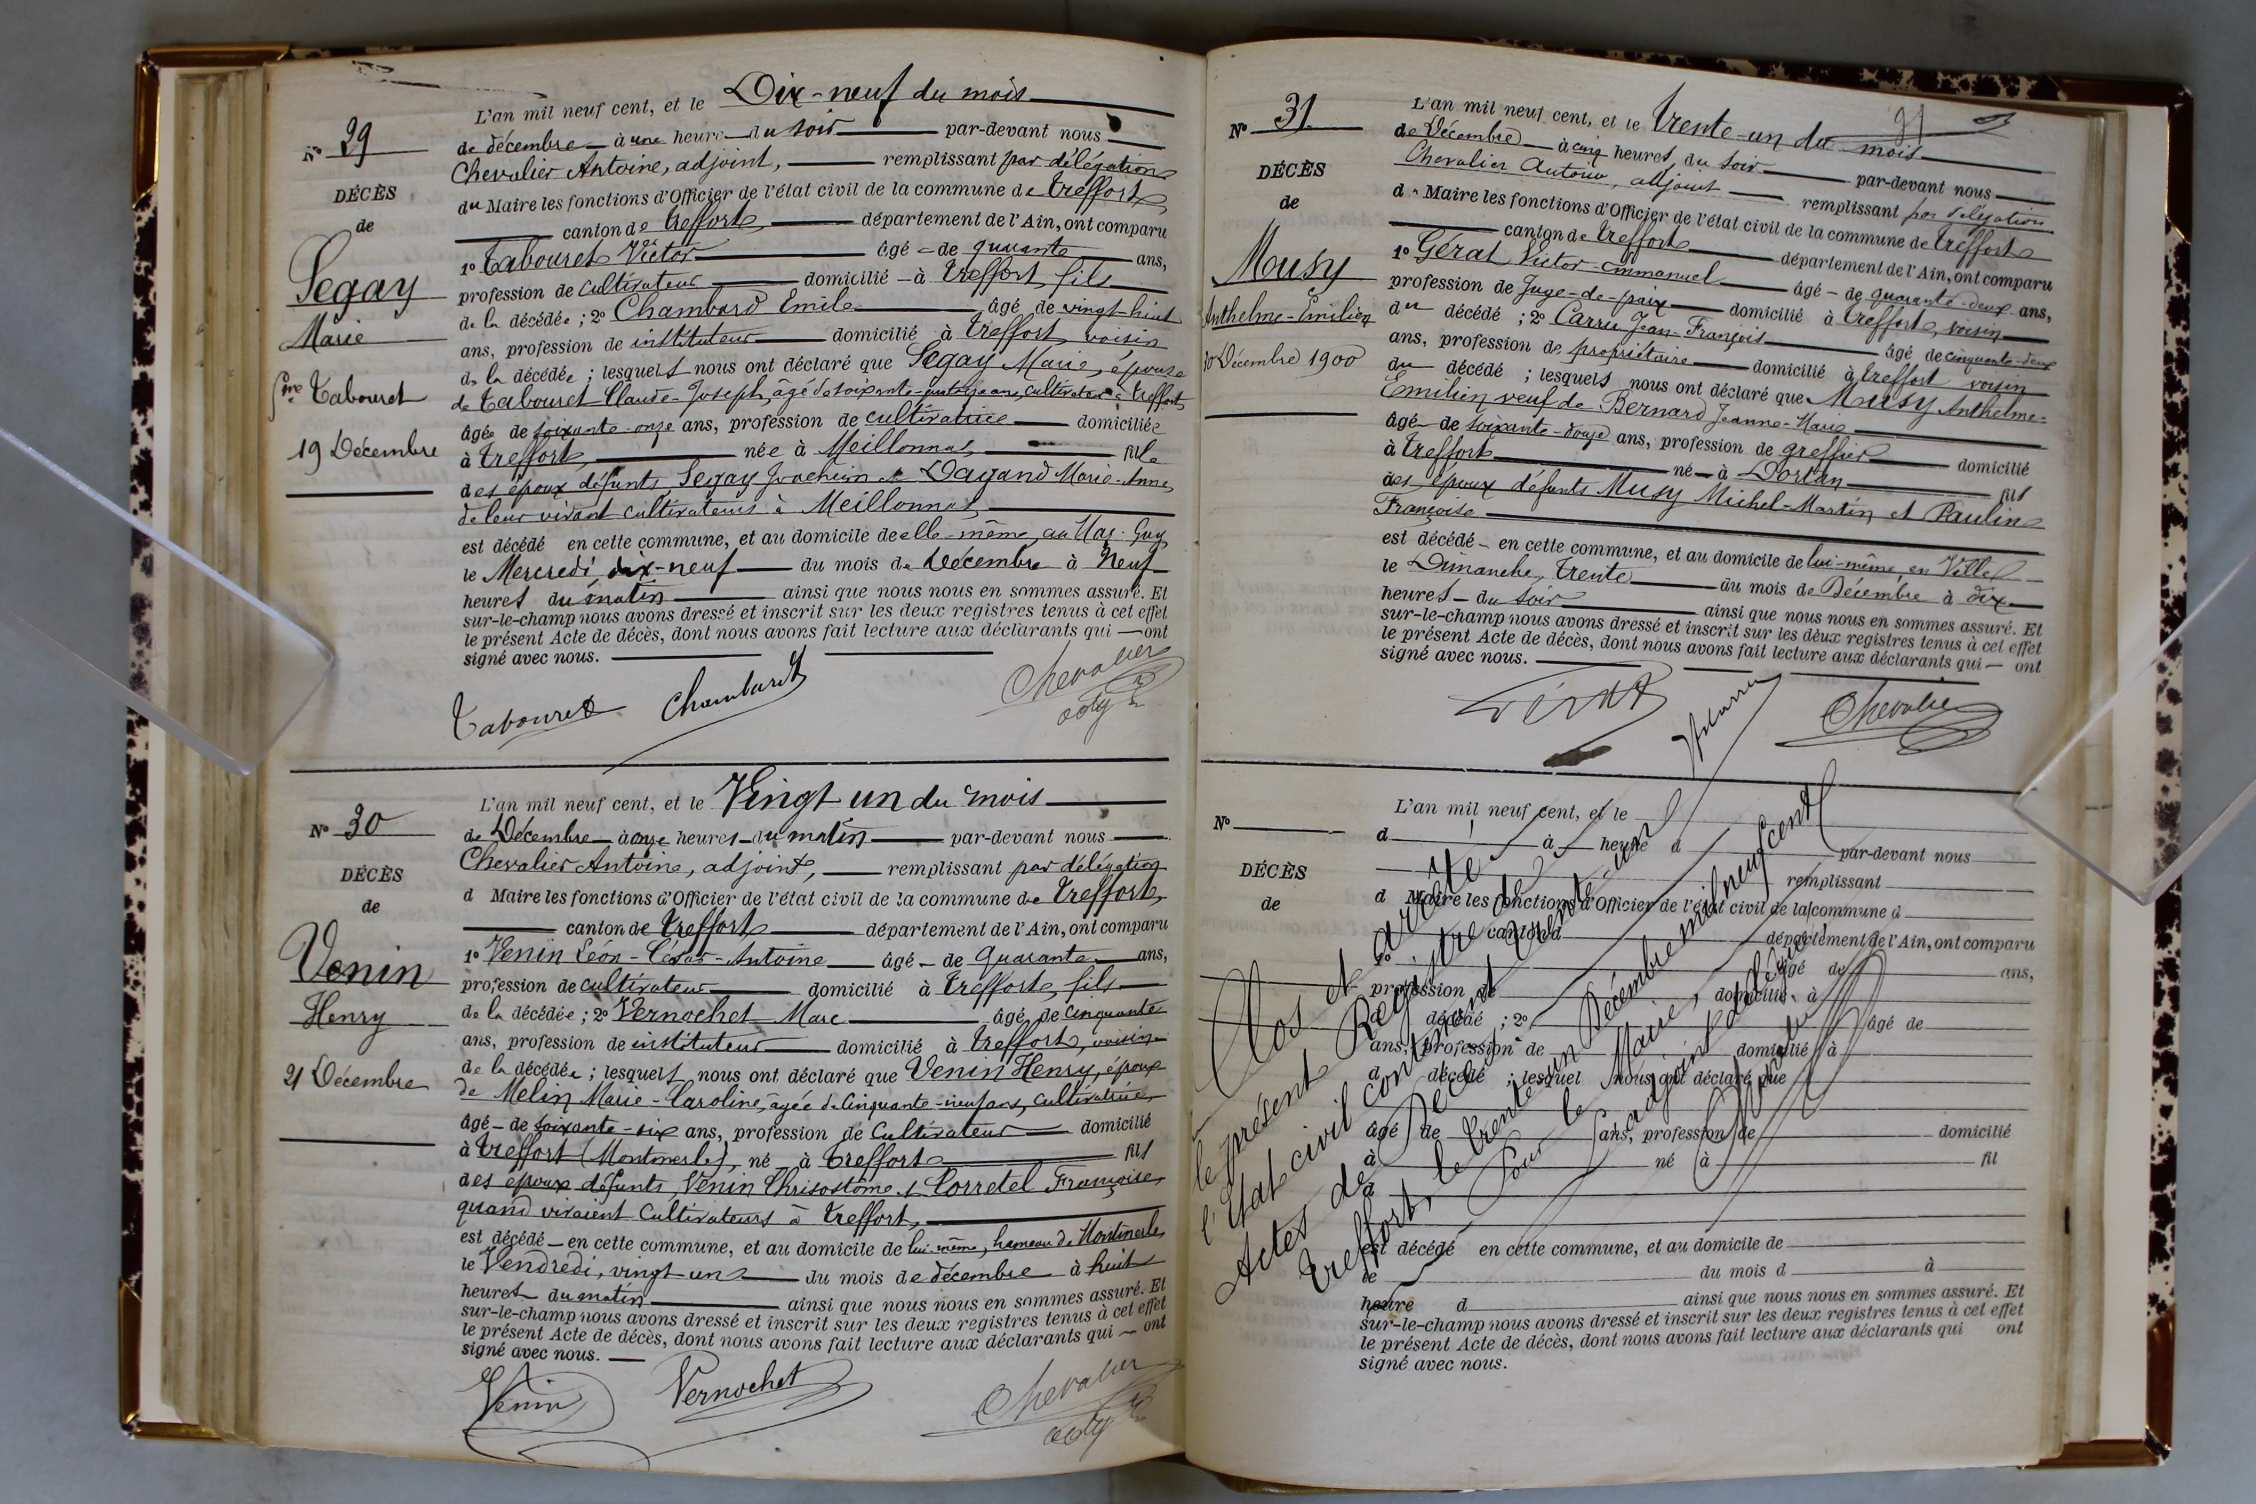 L'an mil neuf cent, et le Dix-neuf du mois
N° 29
de décembre à une heure du soir par-devant nous
Chevalier Antoine, adjoint, remplissant par délégation
DÉCÈS
du Maire les fonctions d'Officier de l'état civil de la commune de Treffort
de
canton de Treffort département de l'Ain, ont comparu
1° Tabouret Victor âgé de quarante ans,
Segay
profession de cultivateur domicilié à Treffort, fils
de la décédée ; 2° Chambard Emile âgé de vingt-huit
Marie
ans, profession de instituteur domicilié à Treffort voisin
de la décédée ; lesquels nous ont déclaré que Segay Marie, épouse
fme Tabouret
de Tabouret Claude-Joseph, âgé de soixante-quatorze ans, cultivateur à Treffort
âgée de soixante-onze ans, profession de cultivatrice domiciliée
19 Décembre
à Treffort, née à Meillonnas, fille
des époux défunts Segay Joachim et Dagand Marie-Anne,
de leur vivant cultivateurs à Meillonnas,
est décédé en cette commune, et au domicile de elle-même, au Mas-Guy
le Mercredi dix-neuf du mois de Décembre à Neuf
heures du matin ainsi que nous nous en sommes assuré. Et
sur-le-champ nous avons dressé et inscrit sur les deux registres tenus à cet effet
le présent Acte de décès, dont nous avons fait lecture aux déclarants qui ont
signé avec nous.
Tabouret Chambard Chevalier
adj
L'an mil neuf cent, et le Vingt un du mois
N° 30
de Décembre à onze heures du matin par-devant nous
Chevalier Antoine, adjoint, remplissant par délégation
DÉCÈS
d Maire les fonctions d'Officier de l'état civil de la commune de Treffort,
de
canton de Treffort département de l'Ain, ont comparu
1° Venin Léon-César-Antoine âgé de Quarante ans,
Venin
profession de cultivateur domicilié à Treffort, fils
Henry
de la décédée ; 2° Vernochet Marc âgé de cinquante
ans, profession de instituteur domicilié à Treffort, voisin
de la décédée ; lesquels nous ont déclaré que Venin Henry, époux
21 Décembre
de Melin Marie-Caroline, âgée de Cinquante-neuf ans, cultivatrice,
âgé de soixante-six ans, profession de Cultivateur domicilié
à Treffort (Montmerle), né à Treffort fils
des époux défunts, Venin Chrisostôme et Corretel Françoise,
quand vivaient Cultivateurs à Treffort,
est décédé en cette commune, et au domicile de lui-même, hameau de Montmerle,
le Vendredi, vingt-un du mois de décembre à huit
heures du matin ainsi que nous nous en sommes assuré. Et
sur-le-champ nous avons dressé et inscrit sur les deux registres tenus à cet effet
le présent Acte de décès, dont nous avons fait lecture aux déclarants qui ont
signé avec nous.
Venin Vernochet Chevalier
adj
31
L'an mil neuf cent, et le Trente-un du mois
N° 31
de Décembre à cinq heures du soir par-devant nous
Chevalier Antoine, adjoint remplissant par délégation
DÉCÈS
d Maire les fonctions d'Officier de l'état civil de la commune de Treffort
de
canton de Treffort département de l'Ain, ont comparu
1° Gérat Victor-Emmanuel âgé de quarante-deux ans,
Musy
profession de Juge-de-paix domicilié à Treffort, voisin
Anthelme-Emilien
du décédé ; 2° Carru Jean-François âgé de cinquante-deux
30 Décembre 1900
ans, profession de propriétaire domicilié à Treffort voisin
du décédé ; lesquels nous ont déclaré que Musy Anthelme-
Emilien veuf de Bernard Jeanne-Marie
âgé de soixante-douze ans, profession de greffier domicilié
à Treffort né à Dortan fils
des époux défunts Musy Michel-Martin et Pauline
Françoise
est décédé en cette commune, et au domicile de lui-même en Ville
le Dimanche, Trente du mois de Décembre à dix
heures du soir ainsi que nous nous en sommes assuré. Et
sur-le-champ nous avons dressé et inscrit sur les deux registres tenus à cet effet
le présent Acte de décès, dont nous avons fait lecture aux déclarants qui ont
signé avec nous.
Gérat Carru Chevalier
L'an mil neuf cent, et le
N°
d à heure d par-devant nous
remplissant
DÉCÈS
d Maire les fonctions d'Officier de l'état civil de la commune d
de
canton d département de l'Ain, ont comparu
1° âgé de ans,
profession de domicilié à
d décédé ; 2° âgé de
ans, profession de domicilié à
d décédé ; lesquel nous ont déclaré que
âgé de ans, profession de domicilié
à né à fil
d
est décédé en cette commune, et au domicile de
le du mois d à
heure d ainsi que nous nous en sommes assuré. Et
sur-le-champ nous avons dressé et inscrit sur les deux registres tenus à cet effet
le présent Acte de décès, dont nous avons fait lecture aux déclarants qui ont
signé avec nous.
Clos et arrêté
le présent Registre de
l'état civil contenant trente-un
Actes de Décès
Treffort, le trente-un Décembre mil neuf cent
Pour le Maire,
l'adjoint délégué,
Chevalier